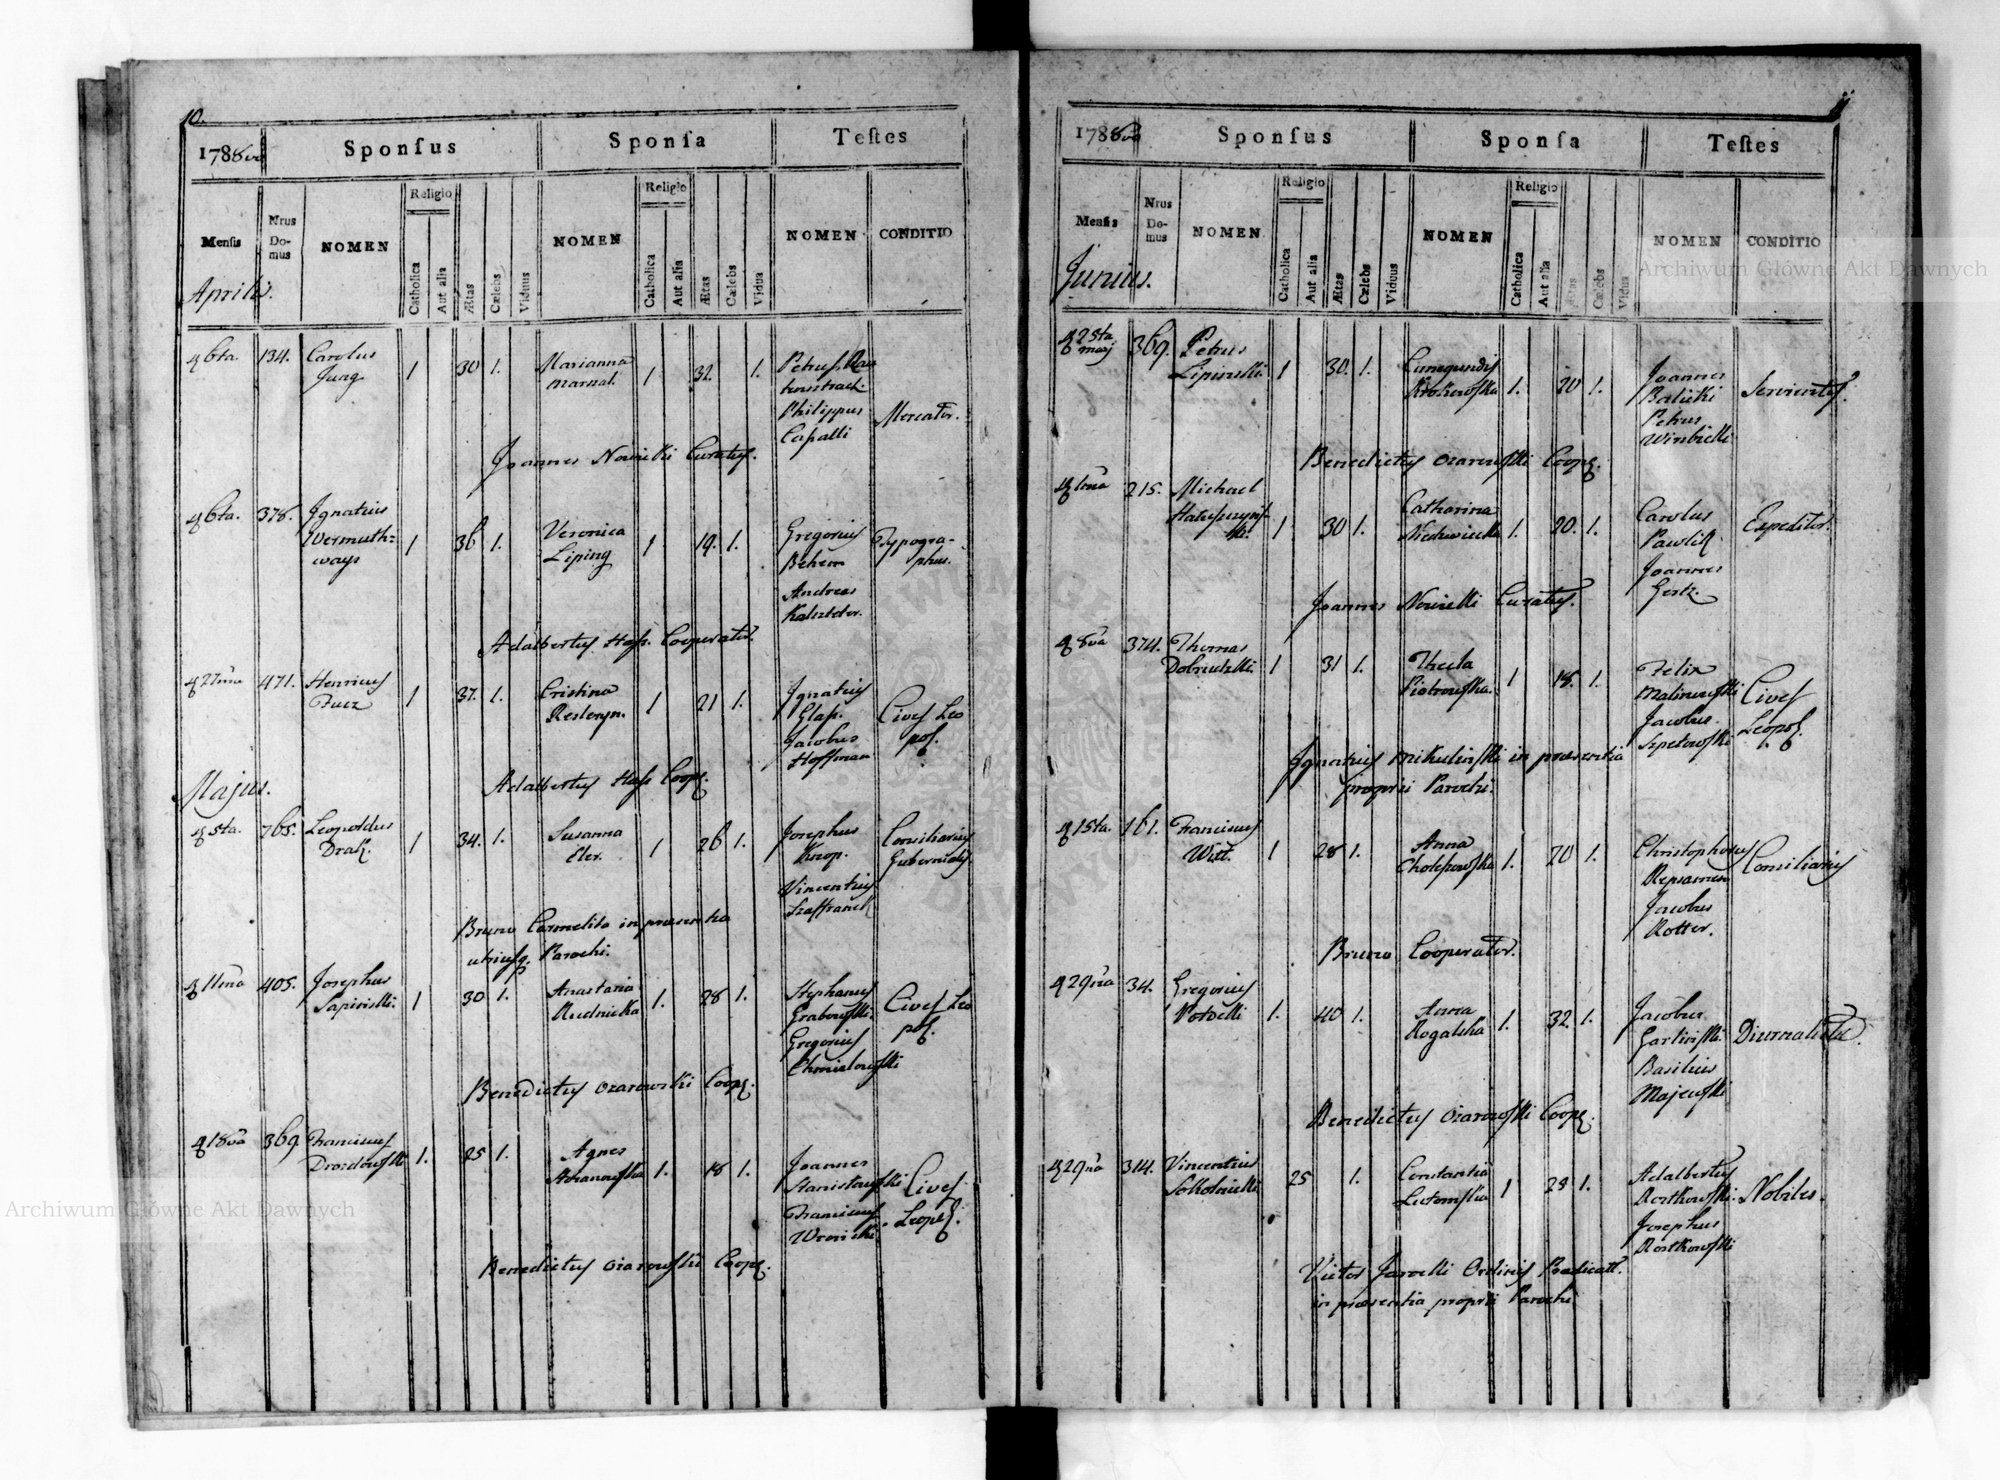 10.
1788vo
Sponſus
Sponſa
Teſtes
Menſis
Nrus Do-mus
NOMEN
Religio
Catholica
Aut alia
Ætas
Cælebs
Viduus
NOMEN
Religio
Catholica
Aut alia
Ætas
Cælebs
Vidua
NOMEN
CONDITIO
Aprilis.
6ta. 134. Carolus 1 30 1. Marianna 1 32. 1. Petrus
Jung
Philippus Mercator.
Capalli
Joannes Nowicki Curatus.
6ta. 378. Ignatius 1 36 1. Veronica 1 19. 1. Gregorius Typogra-
Wermuth= Liping Behem phus.
ways Andreas
Adalbertus Hass Cooperator.
27ma 471. Henricus 1 37. 1. Cristina 1 21 1. Ignatius Cives Leo
Glass. pol.
Jacobus
Hoffman
Adalbertus Hass Coop.
Majus.
5ta. 765. Leopoldus 1 34. 1. Susanna 1 26 1. Josephus Consiliarius
Drak. Knop. Gubernialis
Vincentius
Szaffranek
Bruno Carmelita in præsentia
utriusq. Parochi.
11ma 405. Josephus 1 30 1. Anastasia 1. 28 1. Stephanus Cives Leo
Rudnicka Grabowski. pol.
Gregorius
Benedictus Ozarowski Coop.
18va 369 Franciscus 1. 25 1. Agnes 1. 18 1. Joannes Cives
Drozdowski Adamowska Stanisławski Leopol.
Franciscus
Wronski.
Benedictus Ozarowski Coop.
11
1788vo
Sponſus
Sponſa
Teſtes
Menſis
Nrus Do-mus
NOMEN
Religio
Catholica
Aut alia
Ætas
Cælebs
Viduus
NOMEN
Religio
Catholica
Aut alia
Ætas
Cælebs
Vidua
NOMEN
CONDITIO
Junius.
25ta maj 369. Petrus 1 30. 1. Cunegundis 1. 20 1. Joannes Servientes.
Lipinski Krokowska Balicki
Petrus
Winbicki
Benedictus Ozarowski Coop.
1ma 215. Michael 1 30 1. Catharina 1. 20. 1. Carolus Expeditor.
Pawlik
Joannes
Gertz.
Joannes Nowicki Curatus.
8va 374. Thomas 1 31 1. Thecla 1 18. 1. Felix Cives
Piotrowska. Malinowski Leopol.
Jacobus
Szpetowski
Ignatius Mikulinski in præsentia
proprii Parochi.
15ta. 161. Franciscus 1 28 1. Anna 1. 20 1. Christophorus Consiliarius
Witt. Jacobus
Rotter.
Bruno Cooperator.
29na 34. Gregorius 1. 40 1. Anna 1. 32. 1. Jacobus Diurnalista.
Rogalska
Basilius
Majewski
Benedictus Ozarowski Coop.
29na 314. Vincentius 25 1. Constantia 1 28 1. Adalbertus Nobiles.
Sokolnicki Lutomska Rostkowski.
Josephus
Rostkowski
Victor Jarocki Ordinis Prædicat.
in præsentia proprii Parochi
Archiwum Główne Akt Dawnych
Archiwum Główne Akt Dawnych